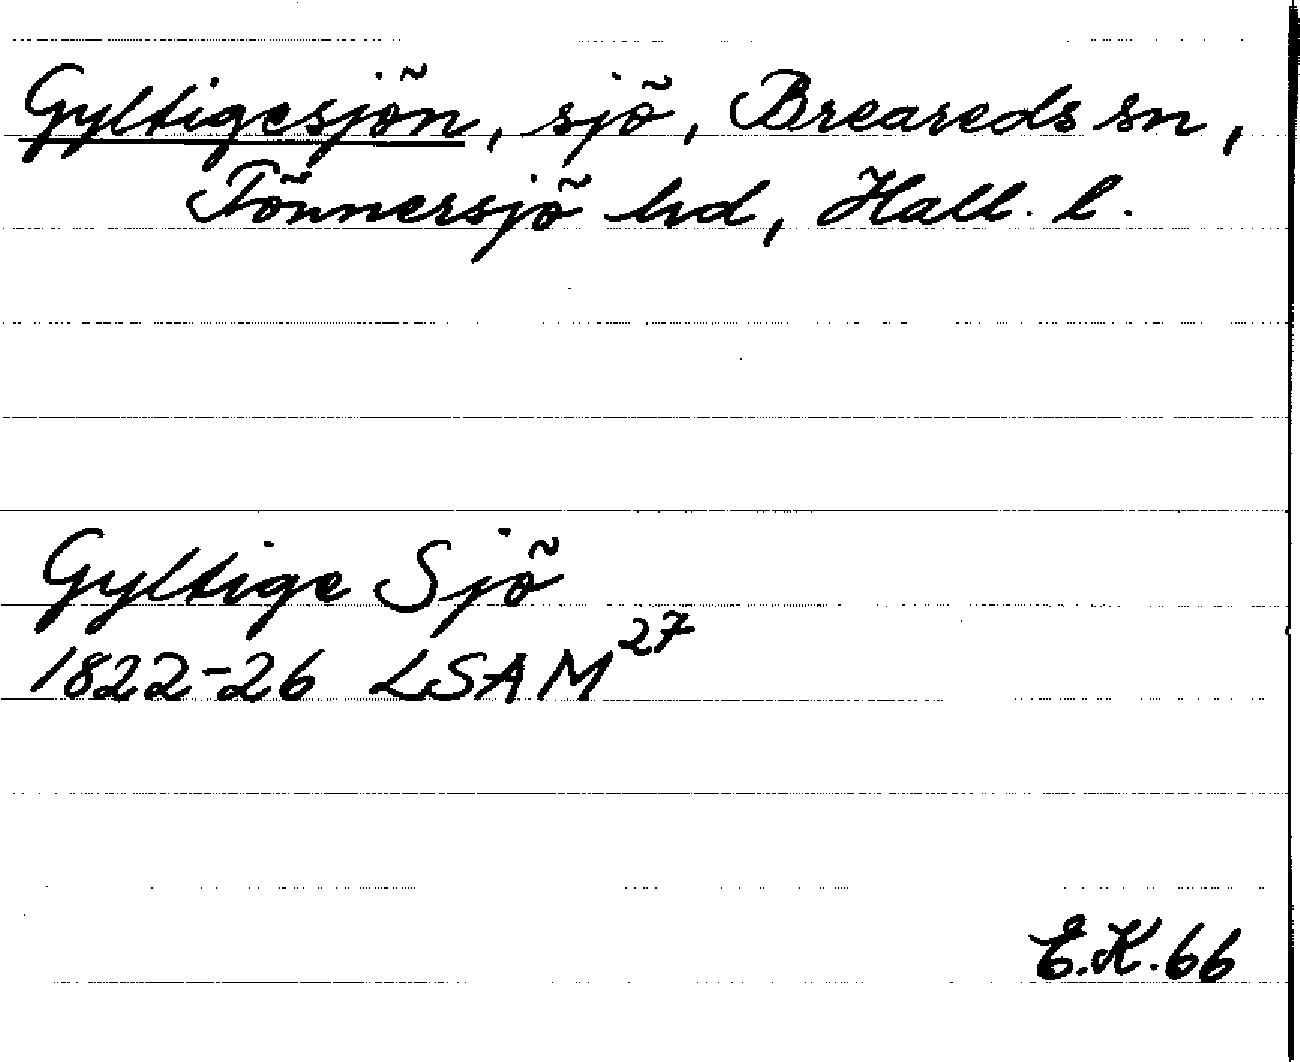 Gyltigesjön, sjö, Breareds sn,
Tönnersjö hd, Hall. l.
Gyltige Sjö
1822-26 LSAM 27
E.K.66